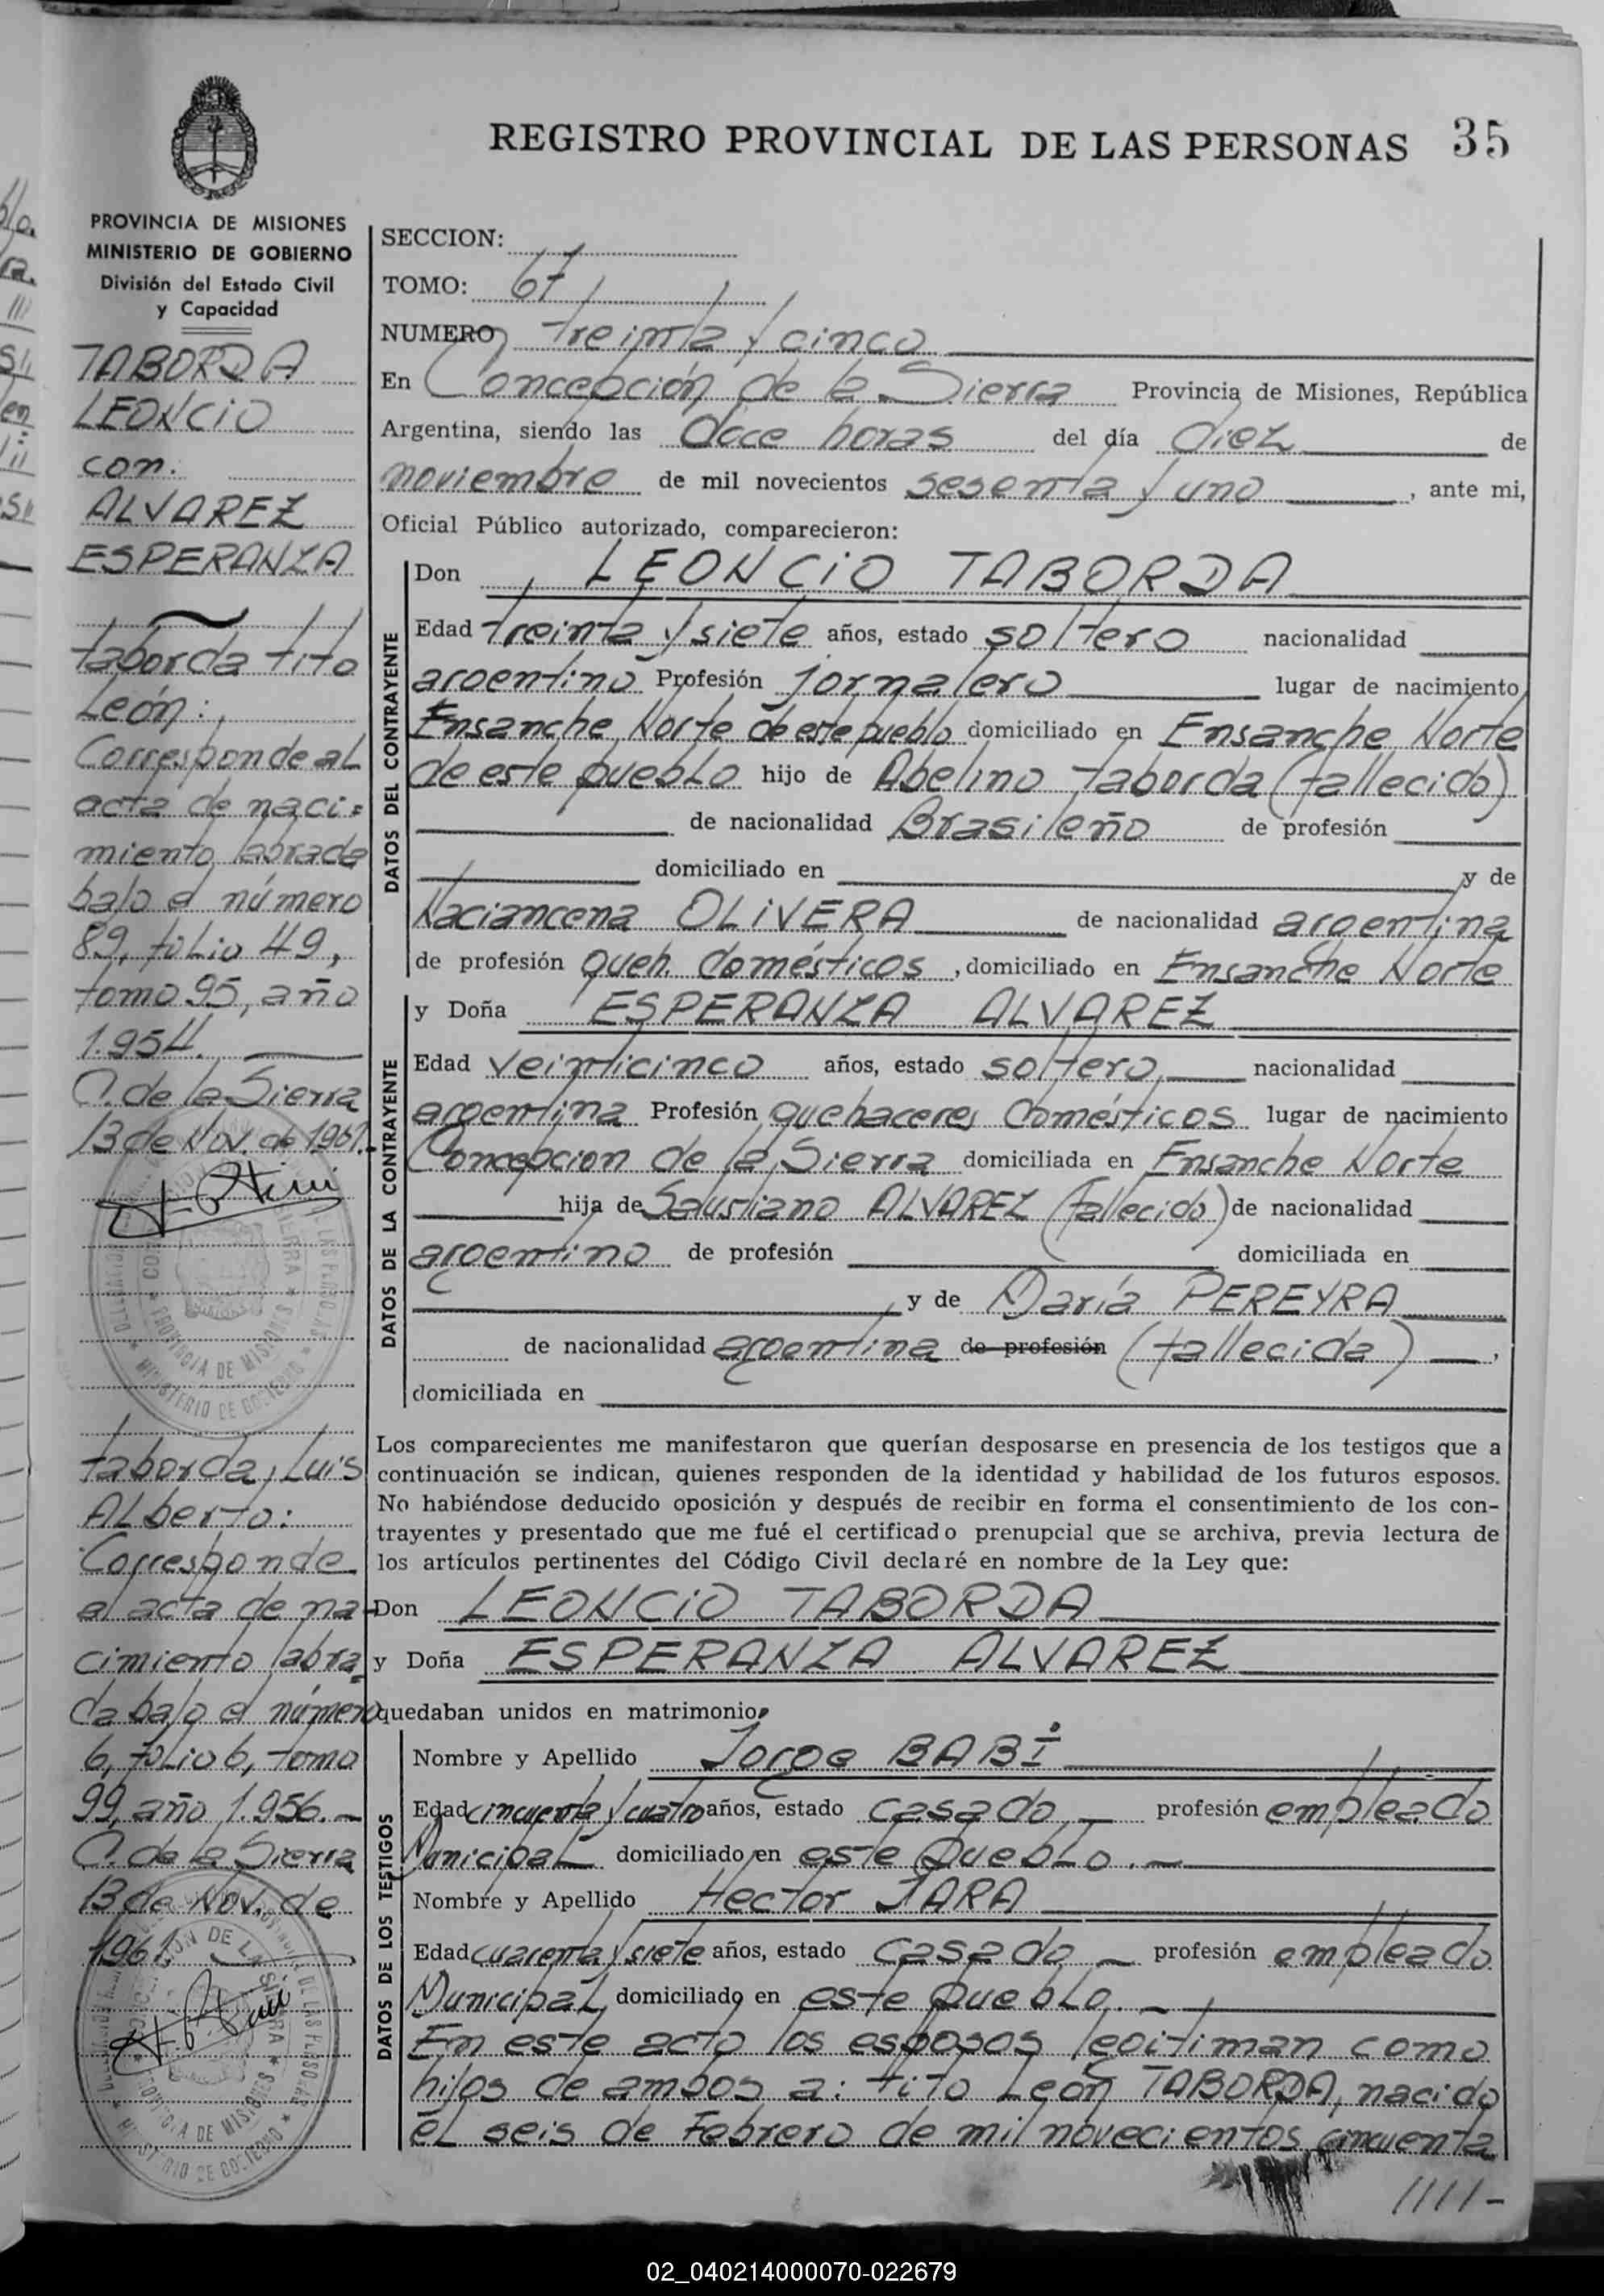 REGISTRO PROVINCIAL DE LAS PERSONAS 35
PROVINCIA DE MISIONES
MINISTERIO DE GOBIERNO
División del Estado Civil
y Capacidad
TABORDA
LEONCIO
con:
ALVAREZ
ESPERANZA
Taborda Tito
León:
Corresponde al
acta de naci=
miento labrada
bajo el número
89, folio 49,
tomo 95, año
1.954.
C. de la Sierra
13 de Nov. de 1961.-
Taborda, Luis
Alberto:
Corresponde
al acta de na-
cimiento labra
da bajo el número
6, folio 6, tomo
99, año 1.956.-
C. de la Sierra
13 de Nov. de
1961
SECCION:
TOMO: 67
NUMERO treinta y cinco
En Concepción de la Sierra Provincia de Misiones, República
Argentina, siendo las doce horas del día diez de
noviembre de mil novecientos sesenta y uno, ante mi,
Oficial Público autorizado, comparecieron:
DATOS DEL CONTRAYENTE
Don LEONCIO TABORDA
Edad treinta y siete años, estado soltero nacionalidad
argentino Profesión jornalero lugar de nacimiento
Ensanche Norte de este pueblo domiciliado en Ensanche Norte
de este pueblo hijo de Abelino Taborda (fallecido)
de nacionalidad Brasileño de profesión
domiciliado en y de
Naciancena OLIVERA de nacionalidad argentina
de profesión queh. domésticos, domiciliado en Ensanche Norte
DATOS DE LA CONTRAYENTE
y Doña ESPERANZA ALVAREZ
Edad veinticinco años, estado soltero, nacionalidad
argentina Profesión quehaceres domésticos lugar de nacimiento
Concepcion de la Sierra domiciliada en Ensanche Norte
hija de Saustiano ALVAREZ (fallecido) de nacionalidad
argentino de profesión domiciliada en
y de María PEREYRA
de nacionalidad argentina de profesión (fallecida),
domiciliada en
Los comparecientes me manifestaron que querían desposarse en presencia de los testigos que a
continuación se indican, quienes responden de la identidad y habilidad de los futuros esposos.
No habiéndose deducido oposición y después de recibir en forma el consentimiento de los con-
trayentes y presentado que me fué el certificado prenupcial que se archiva, previa lectura de
los artículos pertinentes del Código Civil declaré en nombre de la Ley que:
Don LEONCIO TABORDA
y Doña ESPERANZA ALVAREZ
quedaban unidos en matrimonio.
DATOS DE LOS TESTIGOS
Nombre y Apellido Jorge BABI
Edad cincuenta y cuatro años, estado casado profesión empleado
Municipal domiciliado en este pueblo.-
Nombre y Apellido Hector JARA
Edad cuarenta y siete años, estado casado profesión empleado
Municipal, domiciliado en este pueblo
En este acto los esposos legitiman como
hijos de ambos a: Tito León TABORDA, nacido
el seis de Febrero de mil novecientos cincuenta
////-
02_040214000070-022679